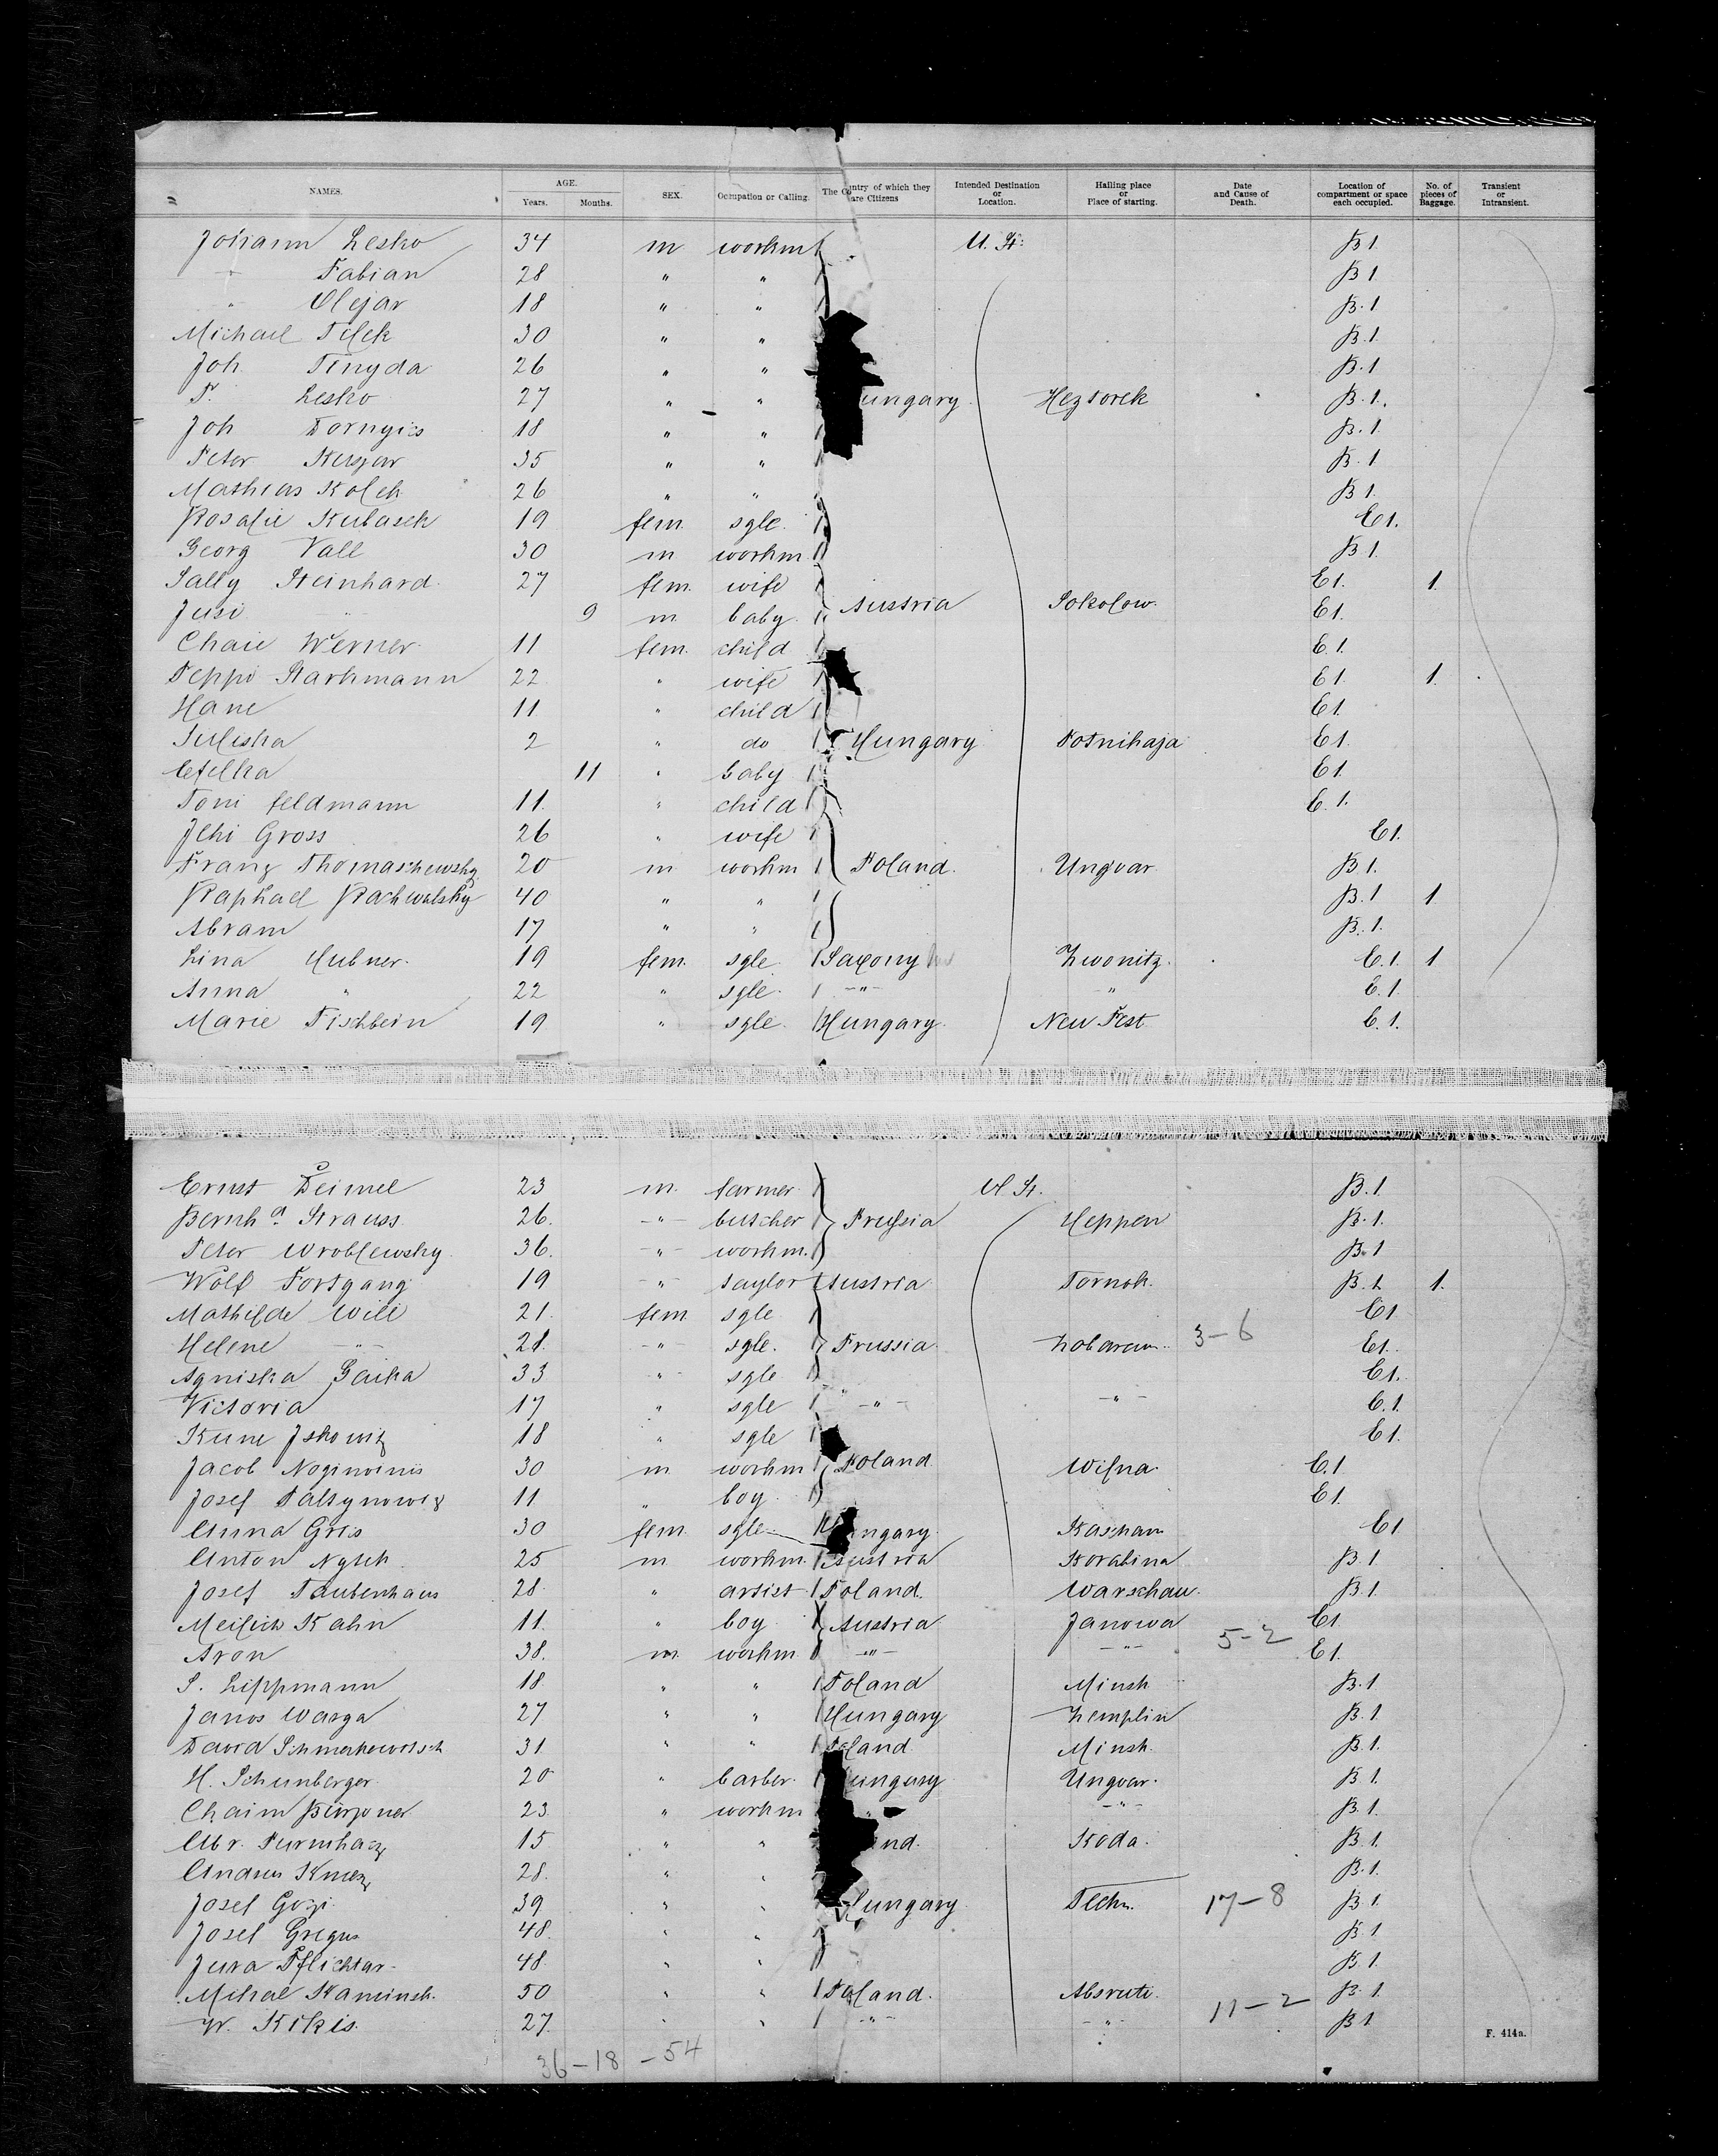 NAMES. AGE. Years. Months. SEX. Occupation or Calling. The Country of which they are Citizens Intended Destination or Location. Hailing place or Place of starting. Date and Cause of Death. Location of compartment or space each occupied. No. of pieces of Baggage. Transient or Intransient.
Johann Lesko 34 m workm U. St. B 1
" Fabian 28 " " B 1
" Olejar 18 " " B. 1
Michael 30 " " B. 1
Joh Tinyda 26 " " B. 1
P. Lesko 27 " " ungary B. 1.
Joh 18 " " B. 1
Peter 35 " " B. 1
Mathias Kolek 26 " " B 1.
Rosalie Kubasek 19 fem. sgle. E 1.
Georg Vall 30 m workm. B 1.
Sally Steinhard 27 fem. wife E 1. 1.
Jusi " 9 m baby Austria Sokolow. E 1.
Chaie Werner 11 fem. child E. 1.
Peppi 22 " wife E 1. 1.
Hane 11 " child E 1.
Juliska 2 " do Hungary E 1.
11 " baby E 1.
Toni feldmann 11. " child E. 1.
Gross 26 " wife E 1.
Franz Thomaschewsky 20 m workm Poland. Ungvar B 1.
Raphael Rachwalsky 40 " " B. 1 1
Abram 17 " " B. 1.
Lina Hubner. 19 fem. sgle Saxony Zwonitz. E. 1. 1
Anna " 22 " sgle. -"- " E. 1.
Marie Fischbein 19 " sgle. Hungary. Neu Pest E. 1.
Ernst Deimel 23 m. farmer U St. B. 1
Bernhd. Strauss 26. -"- butcher Prussia Heppen B. 1.
Peter Wroblewsky 36. -"- workm. B. 1
Wolf Fortgang 19 -"- taylor Austria Tarnok. B. 1 1.
Mathilde Will 21. fem sgle E 1
Helene -"- 28. -"- sgle. Prussia. 3-6 E 1.
Agniska Gaika 33 -"- sgle E 1.
Victoria 17 " sgle -"- -"- E. 1.
Kune Iskowitz 18 " sgle E 1.
Jacob 30 m workm Poland Wilna. E. 1
Josef 11 " boy E 1.
Anna Gres 30 fem. sgle ngary Kaschau E 1
Anton Nytek 25 m workm. Austria Koralina B. 1
Josef Taubenhaus 28 " artist Poland. Warschau. B. 1.
Meilich Kahn 11. " boy Austria Janowa E 1
Aron 38. m. workm -"- -"- 5-2 E 1.
S. Lippmann 18 " " Poland Minsk B. 1
Janos Warga 27 " " Hungary Zemplin B. 1
David Schmerkowitsch 31 " " Poland Minsk. B. 1.
H. Schunberger 20 " barber. ungary Ungvar. B 1.
Chaim 23. " workm " -"- B. 1.
Abr. 15 " " nd. Koda. B. 1.
Andras 28. " " B. 1.
Josef Gozi 39 " " Hungary 17-8 B 1
Josef Gregus 48. " " B. 1
Jura Pflichtar 48. " " B. 1
Mihal Kaminsk. 50 " " Poland. B. 1
W. Kikis. 27. " " -"- -"- 11-2 B 1
F. 414a.
36-18-54